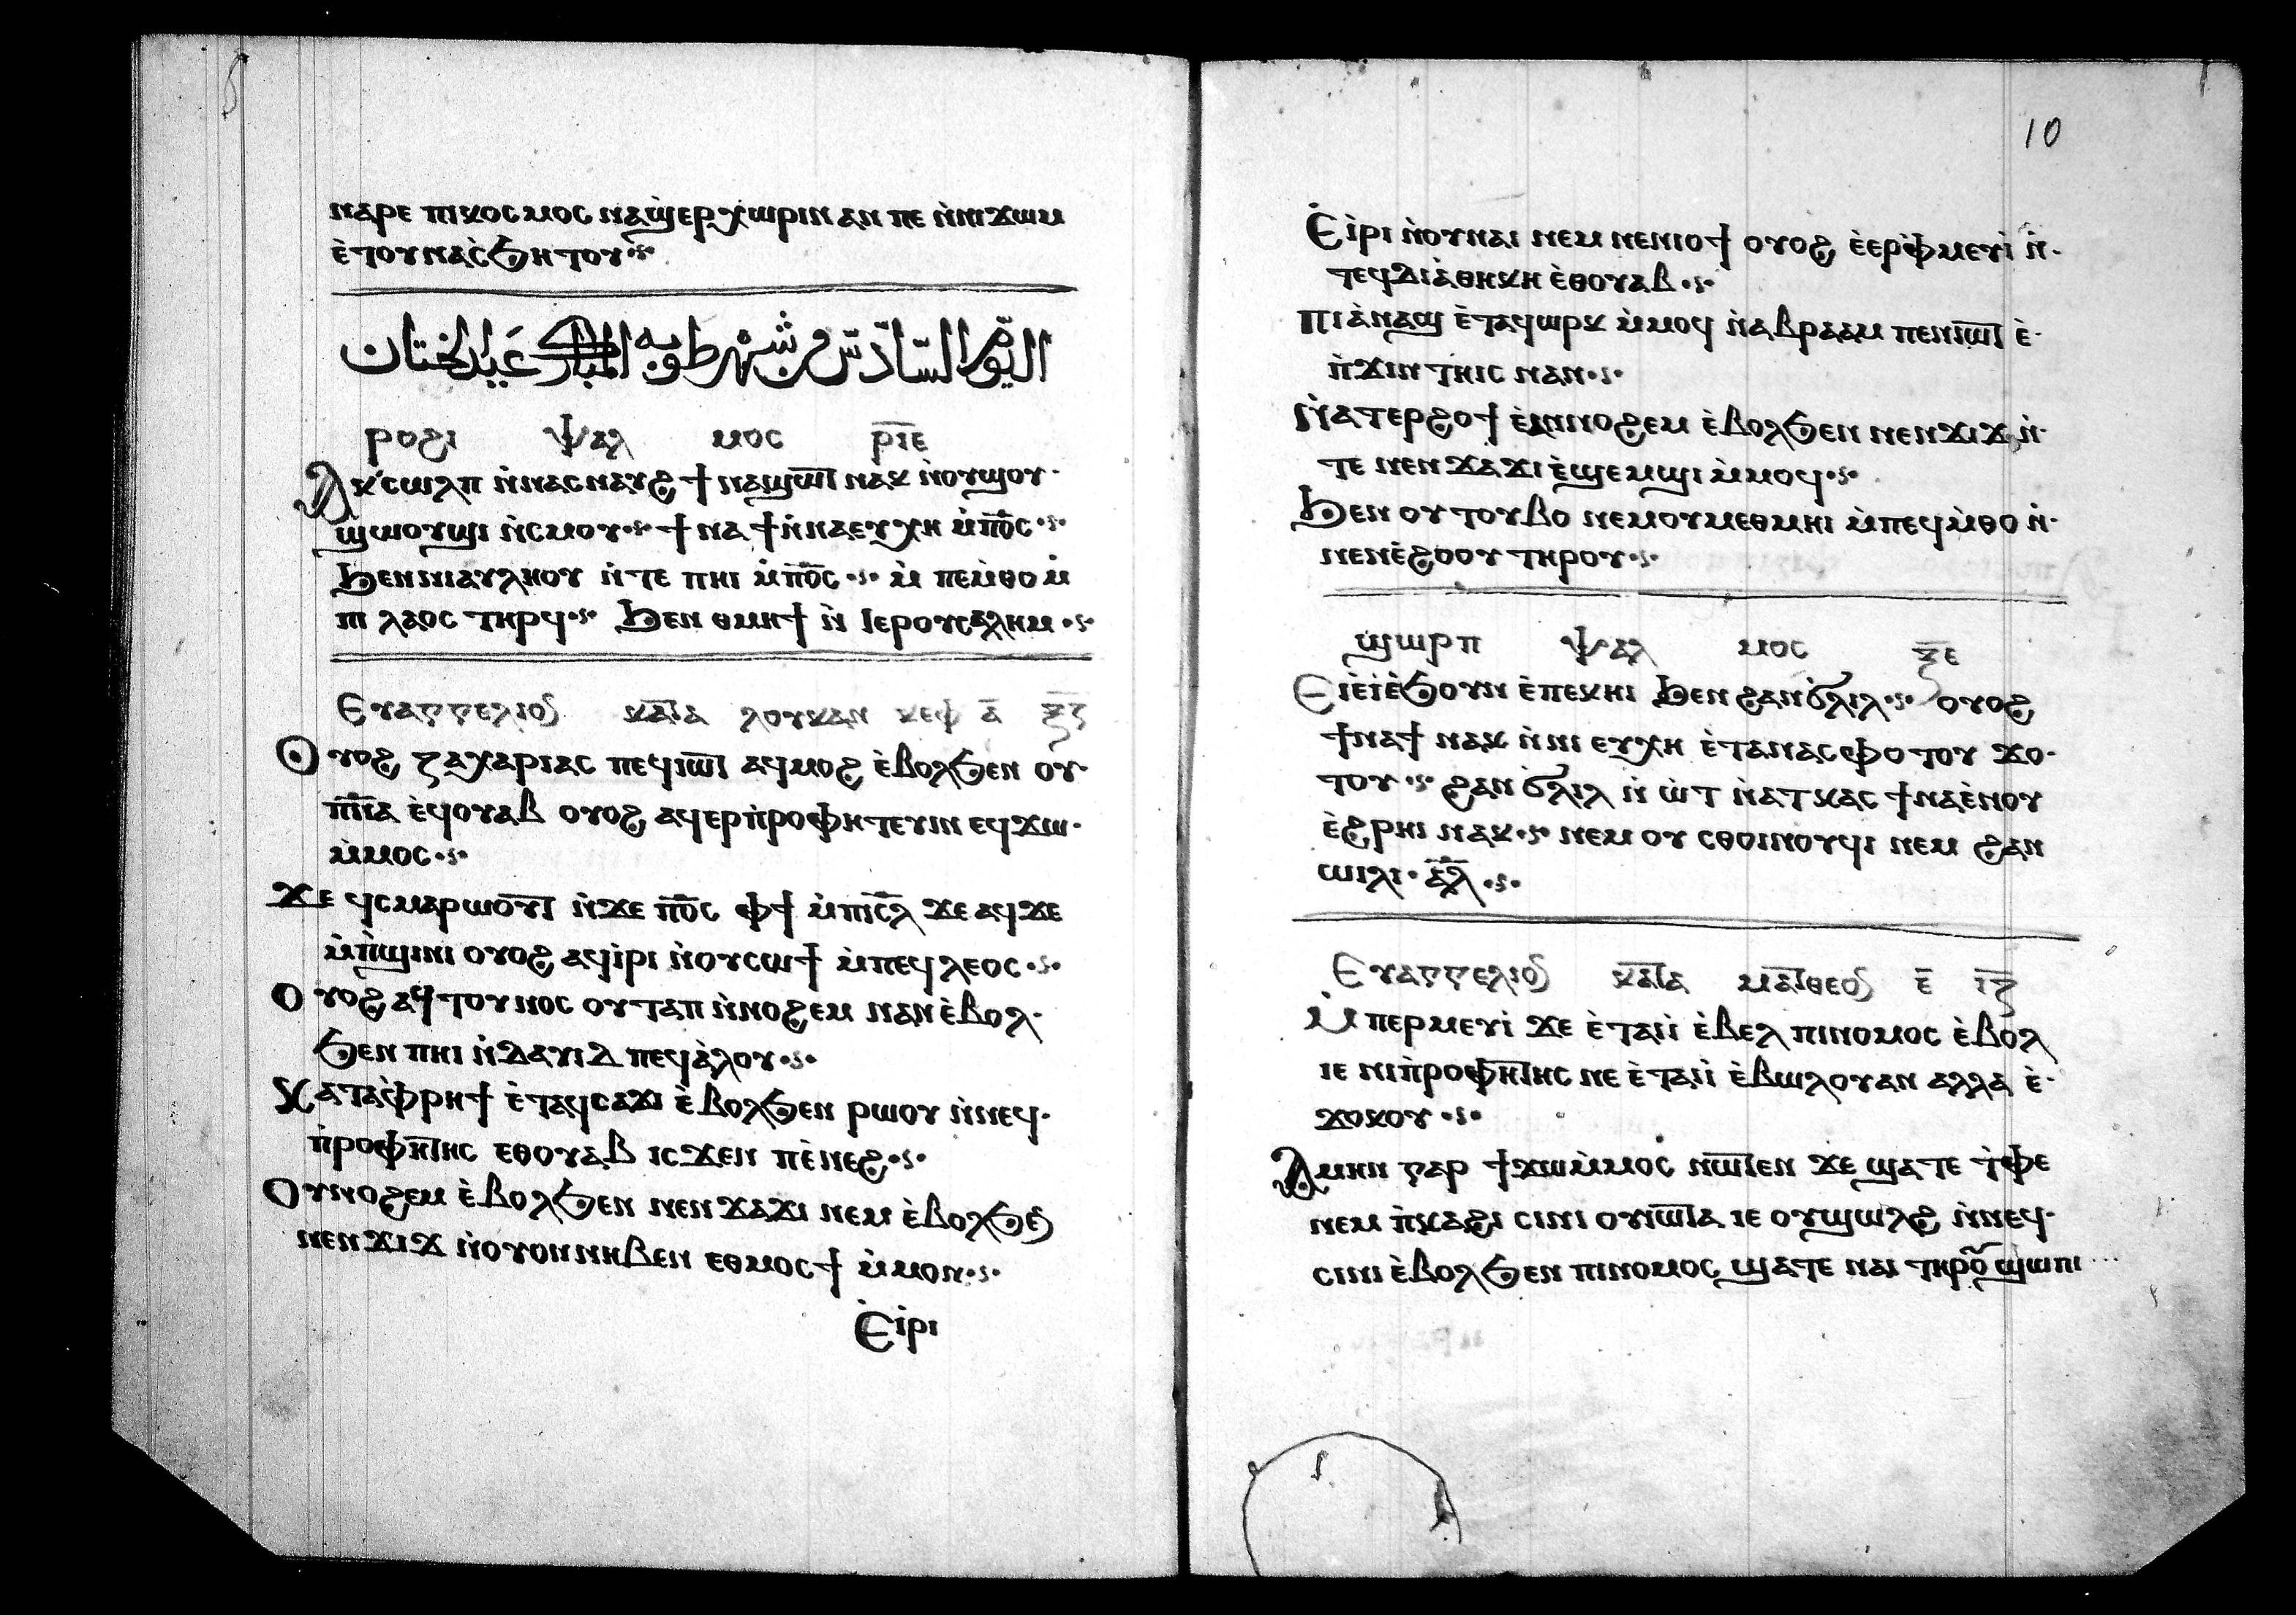 ⲛⲁⲣⲉ ⲡⲓⲕⲟⲥⲙⲟⲥ ⲛⲁϣ̀ⲉⲣⲭⲱⲣⲓⲛ ⲁⲛ ⲡⲉ ⲛ̀ⲛⲓϫⲱⲙ
ⲉ̀ⲧⲟⲩⲛⲁⲥ̀ϧⲏⲧⲟⲩ
اليوم السادس من شهر طوبه المبارك عيد الختان
ⲣⲟϩⲓ ⲯⲁⲗ ⲙⲟⲥ ⲣ̅ⲓ̅ⲉ̅
Ⲁⲕⲥⲱⲗⲡ ⲛ̀ⲛⲁⲥⲛⲁⲩϩ ϯⲛⲁϣⲱⲧ ⲛⲁⲕ ⲛ̀ⲟⲩϣⲟⲩ
ϣⲱⲟⲩϣⲓ ⲛ̀ⲥⲙⲟⲩ ϯⲛⲁϯ ⲛ̀ⲛⲁⲉⲩⲭⲏ ⲙ̀ⲡ̅ⲟ̅ⲥ̅
Ϧⲉⲛ ⲛⲓⲁⲩⲗⲏⲟⲩ ⲛ̀ⲧⲉ ⲡⲏⲓ ⲙ̀ⲡ̅ⲟ̅ⲥ̅ ⲙ̀ ⲡⲉⲙ̀ⲑⲟ ⲙ̀
ⲡⲓ ⲗⲁⲟⲥ ⲧⲏⲣϥ Ϧⲉⲛ ⲑⲙⲏϯ ⲛ̀ ⲓⲉⲣⲟⲩⲥⲁⲗⲏⲙ
Ⲉⲩⲁⲅⲅⲉⲗⲓⲟⲛ ⲕⲁⲧⲁ ⲗⲟⲩⲕⲁⲛ ⲕⲉⲫ ⲁ̅ ⲝ̅ⲍ̅
Ⲟⲩⲟϩ ⲍⲁⲭⲁⲣⲓⲁⲥ ⲡⲉϥⲓⲱⲧ ⲁϥⲙⲟϩ ⲉ̀ⲃⲟⲗϧⲉⲛ ⲟⲩ
ⲡ̅ⲛ̅ⲁ ⲉ̀ϥⲟⲩⲁⲃ ⲟⲩⲟϩ ⲁϥⲉⲣⲡ̀ⲣⲟⲫⲏⲧⲉⲩⲓⲛ ⲉϥϫⲱ
ⲙ̀ⲙⲟⲥ
Ϫⲉ ϥⲥⲙⲁⲣⲱⲟⲩⲧ ⲛ̀ϫⲉ ⲡ̅ⲟ̅ⲥ̅ ⲫϯ ⲙ̀ⲡⲓⲥ̅ⲗ̅ ϫⲉ ⲁϥϫⲉ
ⲙ̀ⲡ̀ϣⲓⲛⲓ ⲟⲩⲟϩ ⲁϥⲓ̀ⲣⲓ ⲛ̀ⲟⲩⲥⲱϯ ⲙ̀ⲡⲉϥⲗⲉⲟⲥ
Ⲟⲩⲟϩ ⲁϥⲧⲟⲩⲛⲟⲥ ⲟⲩⲧⲁⲡ ⲛ̀ⲛⲟϩⲉⲙ ⲛⲁⲛ ⲉ̀ⲃⲟⲗ
ϧⲉⲛ ⲡⲏⲓ ⲛ̀ⲇⲁⲩⲓⲇ ⲡⲉϥⲁ̀ⲗⲟⲩ
Ⲕⲁⲧⲁⲫ̀ⲣⲏϯ ⲉ̀ⲧⲁϥⲥⲁϫⲓ ⲉ̀ⲃⲟⲗϧⲉⲛ ⲣⲱⲟⲩ ⲛ̀ⲛⲉϥ
ⲡ̀ⲣⲟⲫⲏⲧⲏⲥ ⲉⲑⲟⲩⲁⲃ ⲓⲥϫⲉⲛ ⲡⲉ̀ⲛⲉϩ
Ⲟⲩⲛⲟϩⲉⲙ ⲉ̀ⲃⲟⲗϧⲉⲛ ⲛⲉⲛϫⲁϫⲓ ⲛⲉⲙ ⲉ̀ⲃⲟⲗϧⲉⲛ
ⲛⲉⲛϫⲓϫ ⲛ̀ⲟⲩⲟⲛ ⲛⲏⲃⲉⲛ ⲉⲑⲙⲟⲥϯ ⲙ̀ⲙⲟⲛ
Ⲉ̀ⲓ̀ⲣⲓ
10
Ⲉ̀ⲓ̀ⲣⲓ ⲛ̀ⲟⲩⲛⲁⲓ ⲛⲉⲙ ⲛⲉⲛⲓⲟϯ ⲟⲩⲟϩ ⲉ̀ⲉⲣⲫ̀ⲙⲉⲩⲓ̀ ⲛ̀
ⲧⲉϥⲇⲓⲁ̀ⲑⲏⲕⲏ ⲉ̀ⲑⲟⲩⲁⲃ
Ⲡⲓⲁ̀ⲛⲁϣ ⲉ̀ⲧⲁϥⲱⲣⲕ ⲙ̀ⲙⲟϥ ⲛ̀ⲁⲃⲣⲁⲁⲙ ⲡⲉⲛⲓⲱⲧ ⲉ̀
ⲡ̀ϫⲓⲛ ⲧⲏⲓⲥ ⲛⲁⲛ
Ⲛ̀ⲁⲧⲉⲣϩⲟϯ ⲉ̀ⲁⲛⲛⲟϩⲉⲙ ⲉ̀ⲃⲟⲗϧⲉⲛ ⲛⲉⲛϫⲓϫ ⲛ̀
ⲧⲉ ⲛⲉⲛϫⲁϫⲓ ⲉ̀ϣⲉⲙϣⲓ ⲙ̀ⲙⲟϥ
Ϧⲉⲛ ⲟⲩⲧⲟⲩⲃⲟ ⲛⲉⲙⲟⲩⲙⲉⲑⲙⲏⲓ ⲙ̀ⲡⲉϥⲙ̀ⲑⲟ ⲛ̀
ⲛⲉⲛⲉ̀ϩⲟⲟⲩ ⲧⲏⲣⲟⲩ
ϣⲱⲣⲡ ⲯⲁⲗ ⲙⲟⲥ ⲝ̅ⲉ̅
Ⲉⲓⲉ̀ⲓ̀ⲉ̀ϧⲟⲩⲛ ⲉ̀ⲡⲉⲕⲏⲓ ϧⲉⲛ ϩⲁⲛϭ̀ⲗⲓⲗ ⲟⲩⲟϩ
ϯⲛⲁϯ ⲛⲁⲕ ⲛ̀ⲛⲓ ⲉⲩⲭⲏ ⲉ̀ⲧⲁⲛⲁⲥⲫⲟⲧⲟⲩ ϫⲟ
ⲧⲟⲩ ϩⲁⲛ ϭ̀ⲗⲓⲗ ⲛ̀ ⲱ̀ⲧ ⲛ̀ⲁⲧⲕⲁⲥ ϯⲛⲁⲉ̀ⲛⲟⲩ
ⲉ̀ϩⲣⲏⲓ ⲛⲁⲕ ⲛⲉⲙ ⲟⲩ ⲥⲑⲟⲓⲛⲟⲩϥⲓ ⲛⲉⲙ ϩⲁⲛ
ⲱⲓⲗⲓ ⲁ̅ⲗ̅
Ⲉⲩⲁⲅⲅⲉⲗⲓⲟⲛ ⲕⲁⲧⲁ ⲙⲁⲧⲑⲉⲟⲛ ⲉ̅ ⲓ̅ⲍ̅
Ⲙ̀ⲡⲉⲣⲙⲉⲩⲓ̀ ϫⲉ ⲉ̀ⲧⲁⲓⲓ̀ ⲉ̀ⲃⲉⲗ ⲡⲓⲛⲟⲙⲟⲥ ⲉ̀ⲃⲟⲗ
ⲓⲉ ⲛⲓⲡ̀ⲣⲟⲫⲏⲧⲏⲥ ⲛⲉ ⲉ̀ⲧⲁⲓⲓ̀ ⲉ̀ⲃⲱⲗⲟⲩⲁⲛ ⲁⲗⲗⲁ ⲉ̀
ϫⲟⲕⲟⲩ
Ⲁⲙⲏⲛ ⲅⲁⲣ ϯϫⲱⲙ̀ⲙⲟⲥ ⲛⲱⲧⲉⲛ ϫⲉ ϣⲁⲧⲉ ⲧ̀ⲫⲉ
ⲛⲉⲙ ⲡ̀ⲕⲁϩⲓ ⲥⲓⲛⲓ ⲟⲩⲓⲱⲧⲁ ⲓⲉ ⲟⲩϣⲱⲗϩ ⲛ̀ⲛⲉϥ
ⲥⲓⲛⲓ ⲉ̀ⲃⲟⲗϧⲉⲛ ⲡⲓⲛⲟⲙⲟⲥ ϣⲁⲧⲉ ⲛⲁⲓ ⲧⲏⲣⲟⲩ ϣⲱⲡⲓ